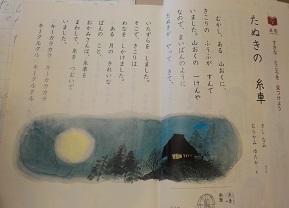 すきな ところを 見つけよう
たぬきの 糸車
きし なみ
むかし、ある 山おくに、
きこりの ふうふが すんで
いました。山おくの 一けんや
なので、まいばんのように
たぬきが やって きて、
いたずらを しました。
そこで、きこりは
わなを しかけました。
ある 月の きれいな
ばんの こと、
おかみさんは、糸車を
まわして、糸を つむいで
いました。
キーカラカラ
キーカラカラ
キークルクル
キークルクル